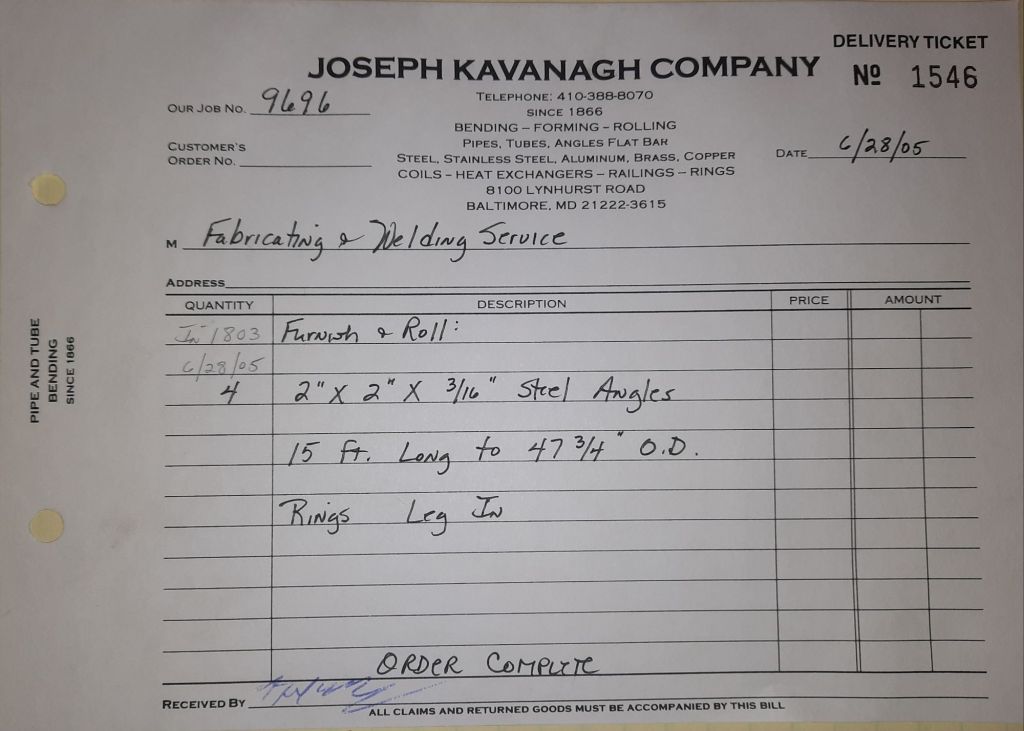 DELIVERY TICKET
JOSEPH KAVANAGH COMPANY
Nº 1546
OUR JOB NO. 9696
TELEPHONE: 410-388-8070
SINCE 1866
BENDING – FORMING – ROLLING
CUSTOMER'S
ORDER NO.
PIPES, TUBES, ANGLES FLAT BAR
STEEL, STAINLESS STEEL, ALUMINUM, BRASS, COPPER
DATE 6/28/05
COILS – HEAT EXCHANGERS – RAILINGS – RINGS
8100 LYNHURST ROAD
BALTIMORE, MD 21222-3615
M Fabricating & Welding Service
ADDRESS
QUANTITY DESCRIPTION PRICE AMOUNT
In 1803 Furnish & Roll:
6/28/05
4 2" X 2" X 3/16" Steel Angles
15 Ft. Long to 47 3/4" O.D.
Rings Leg In
ORDER COMPLETE
RECEIVED BY
ALL CLAIMS AND RETURNED GOODS MUST BE ACCOMPANIED BY THIS BILL
PIPE AND TUBE
BENDING
SINCE 1866